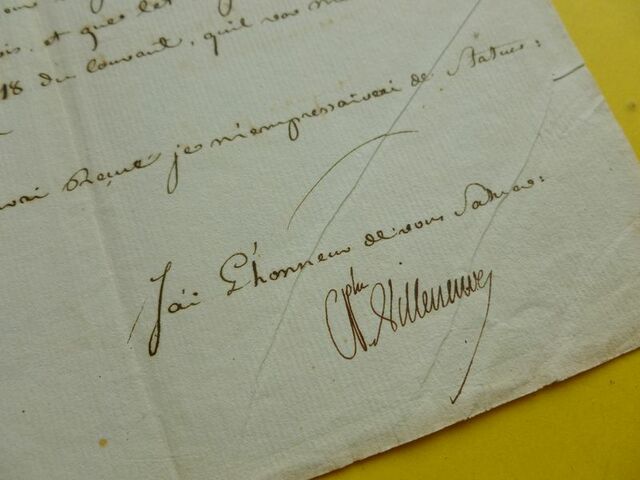 et que
18 du courant, qu'il vous
Reçue je m'empresserai de Statuer:
J'ai L'honneur de vous Saluer:
Villeneuve